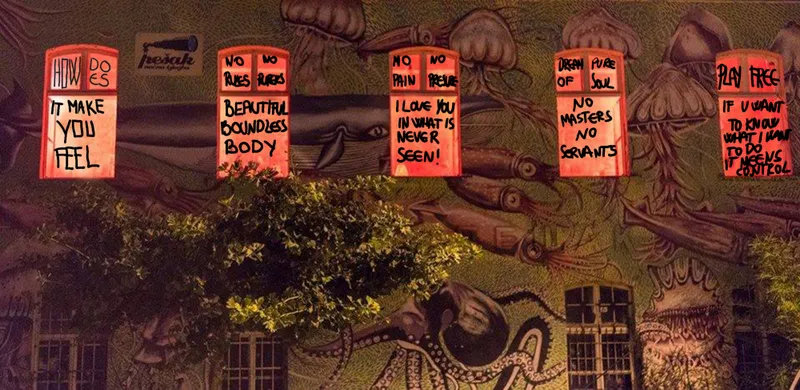 pešak
HOW DO
ES
IT MAKE
YOU
FEEL
NO NO
RULES RULERS
BEAUTIFUL
BOUNDLESS
BODY
NO NO
PAIN PRESURE
I LOVE YOU
IN WHAT IS
NEVER
SEEN!
DREAM PURE
OF SOUL
NO
MASTERS
NO
SERVANTS
PLAY FREE
IF U WANT
TO KNOW
WHAT I WANT
TO DO
IT NEENS
CONTROL